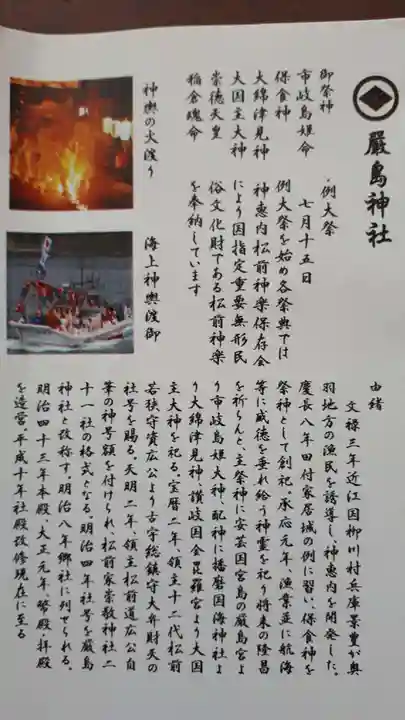 嚴島神社
御祭神
市岐島姫命
保食神
大綿津見神
大国主大神
崇徳天皇
稲倉魂命
・例大祭
七月十五日
例大祭を始め各祭典では
神恵内松前神楽保存会
により国指定重要無形民
俗文化財である松前神楽
を奉納しています
神輿の火渡り
海上神輿渡御
由緒
文禄三年近江国柳川村兵庫景重が奥
羽地方の漁民を誘導し、神恵内を開発した。
慶長八年田付家居城の例に習い、保食神を
祭神として創祀。承応元年、漁業並に航海
等に威徳を垂れ給う神霊を祀り将来の隆昌
を祈らんと、主祭神に安芸国宮島の厳島宮よ
り市岐島姫大神、配神に播磨国海神社よ
り大綿津見神、讃岐国金毘羅宮より大国
主大神を祀る。宝暦二年、領主十二代松前
若狭守資広公より古宇総鎮守大弁財天の
社号を賜る。天明二年、領主松前道広公自
筆の神号額を付けられ、松前家崇敬神社二
十一社の格式となる。明治四年社号を嚴島
神社と改称す。明治八年郷社に列せられる。
明治四十三年本殿、大正元年、幣殿・拝殿
を造営。平成十年社殿改修現在に至る